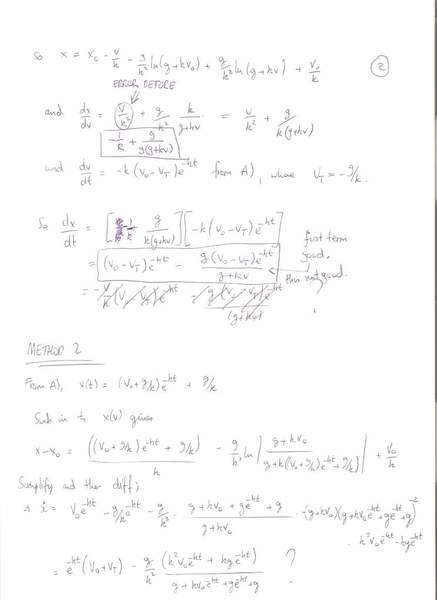 so x = x₀ - v/k - g/k² ln(g+kv₀) + g/k² ln(g+kv) + v₀/k
②
ERROR BEFORE
and dx/dv = v/k² + g/k² k/(g+kv) = v/k² + g/k(g+kv)
-1/k + g/g(g+kv)
and dv/dt = -k(v₀-v_T)e^-kt from A), where v_T = -g/k.
So dx/dt = [ -1/k g/k(g+kv) ][ -k(v₀-v_T)e^-kt ]
first term good.
= (v₀-v_T)e^-kt - g(v₀-v_T)e^-kt/(g+kv)
this not good.
METHOD 2
From A), v(t) = (v₀+g/k)e^-kt + g/k
Sub in to x(v) gives
x-x₀ = ((v₀+g/k)e^-kt + g/k)/k - g/k² ln|(g+kv₀)/(g+k((v₀+g/k)e^-kt+g/k))| + v₀/k
Simplify and then diff;
⇒ ẋ = v₀e^-kt - g/k e^-kt - g/k² · (g+kv₀+ge^-kt+g)/(g+kv₀) · -(g+kv₀)(g+kv₀e^-kt+ge^-kt+g)^-2
k²v₀e^-kt - kge^-kt
= e^-kt(v₀+v_T) - g/k² (k²v₀e^-kt + kge^-kt)/(g+kv₀e^-kt+ge^-kt+g) ?